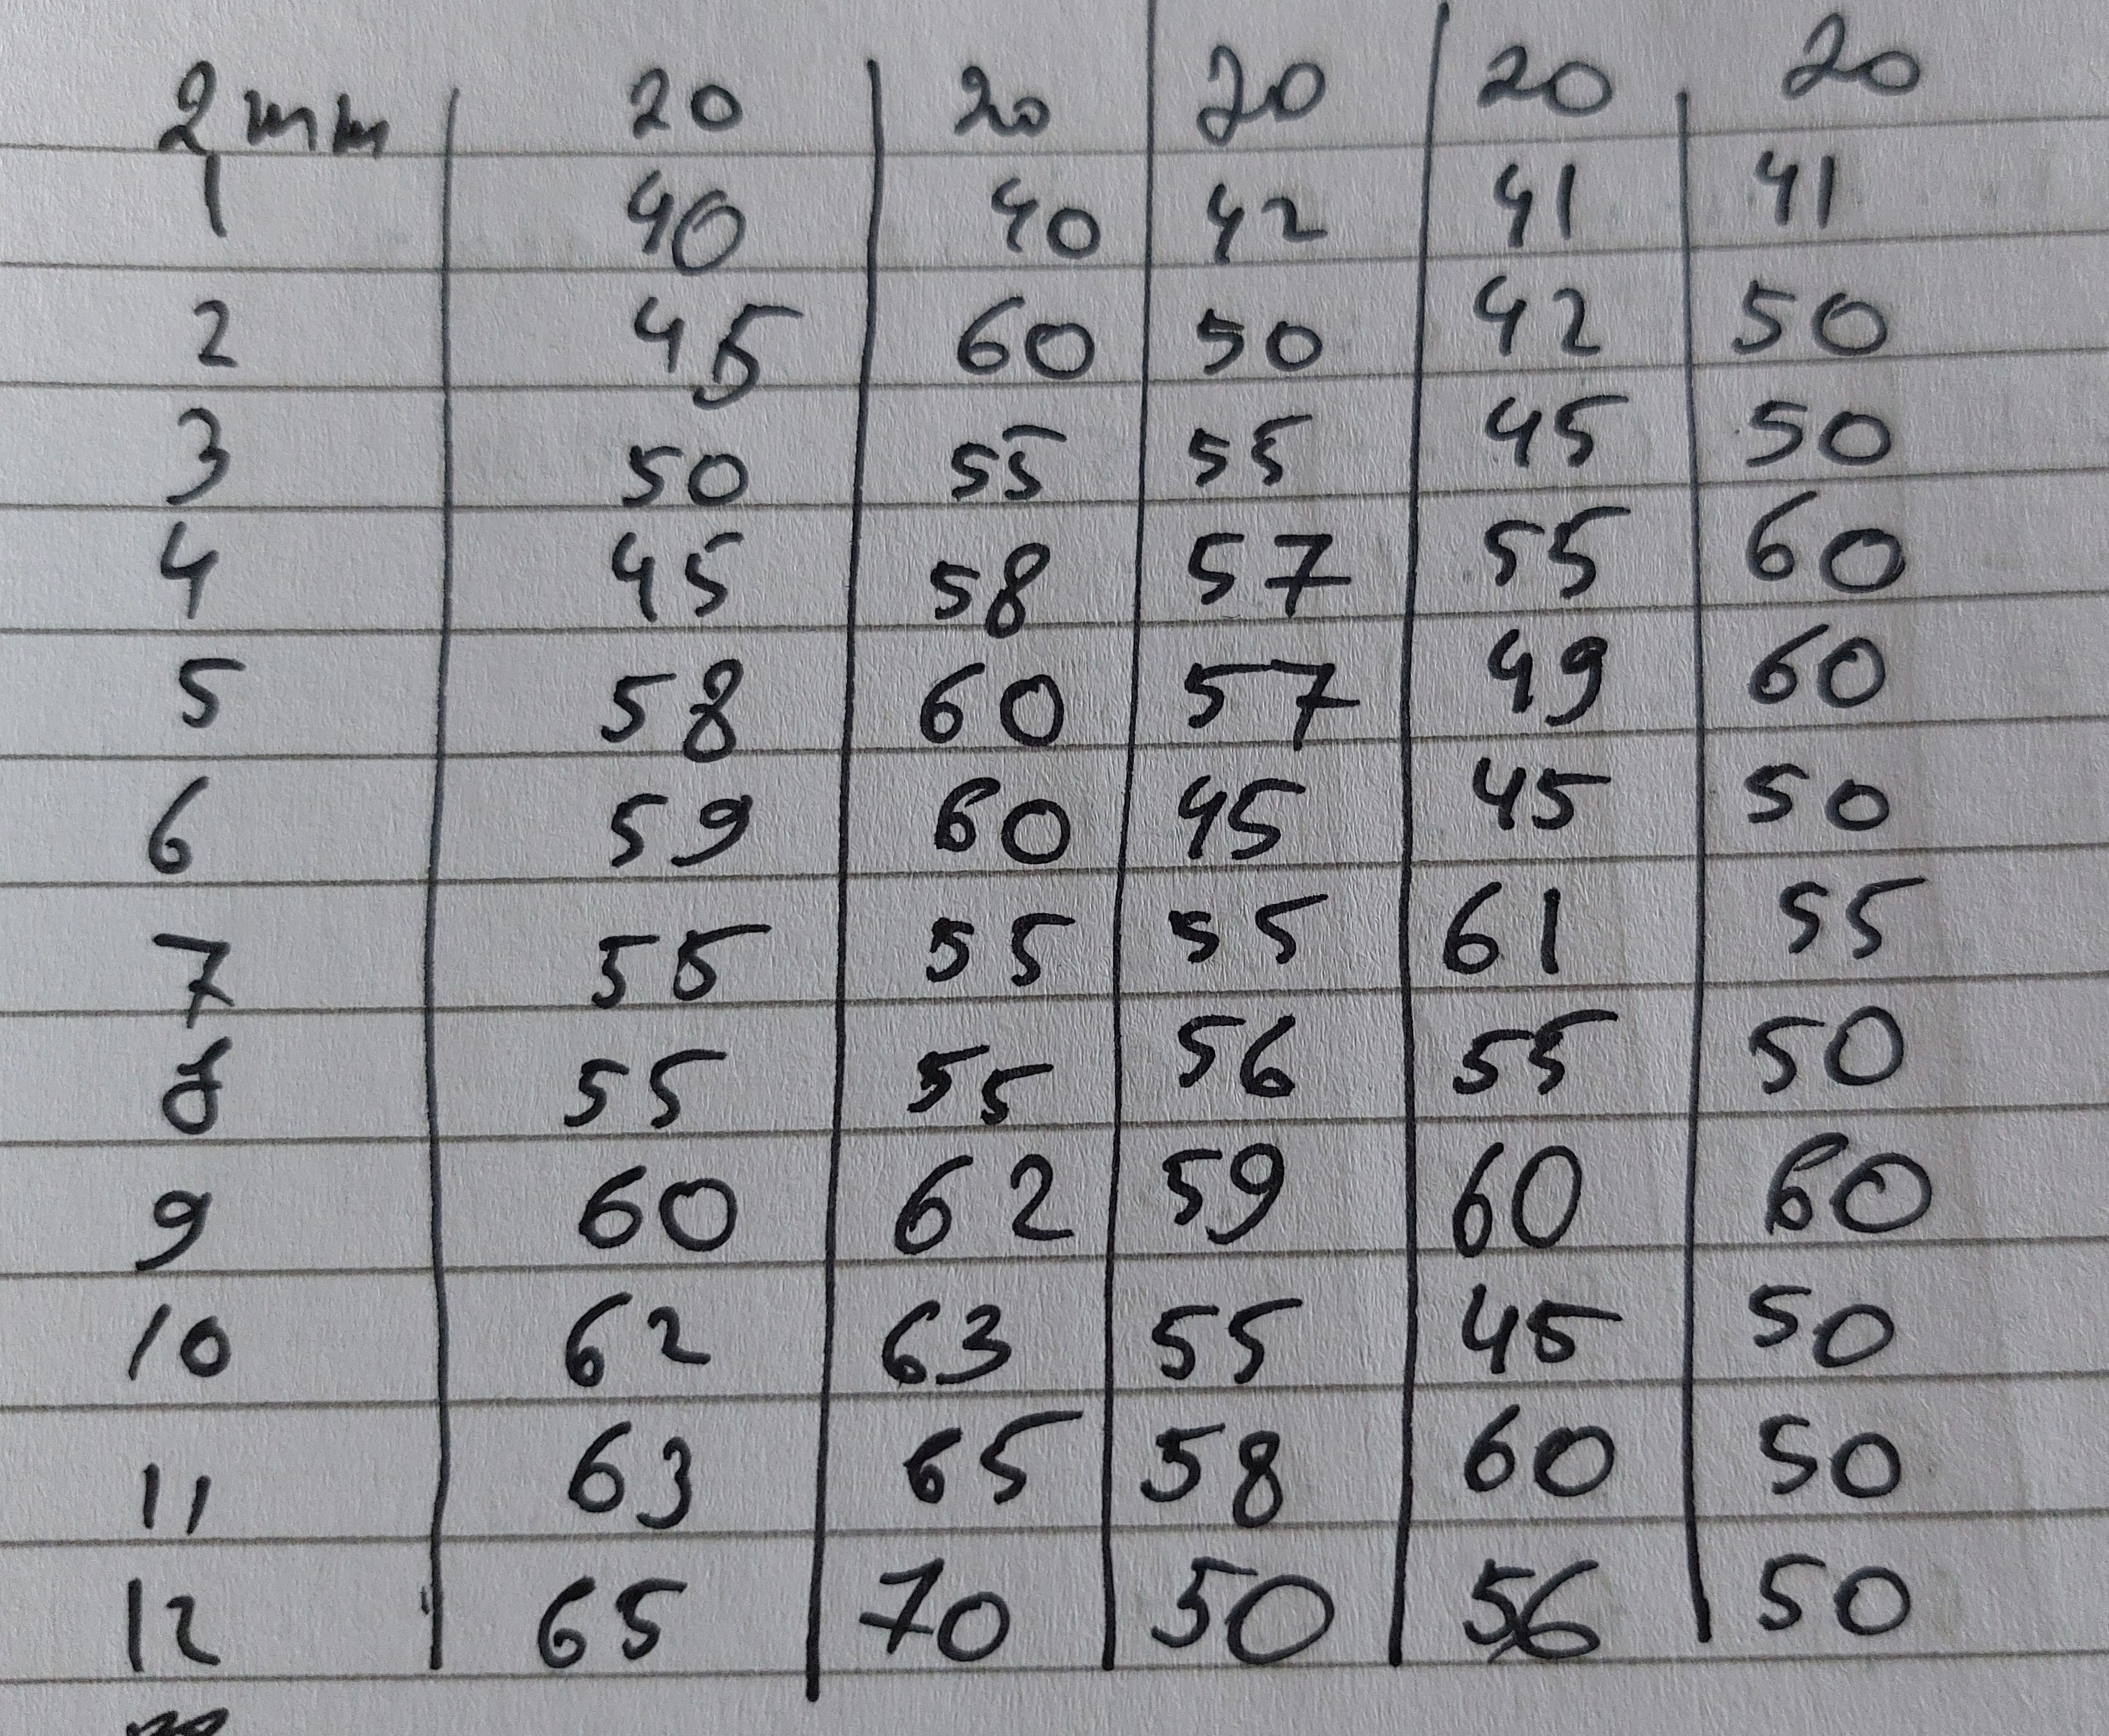 2mm 20 20 20 20 20
1 40 40 42 41 41
2 45 60 50 42 50
3 50 55 55 45 50
4 45 58 57 55 60
5 58 60 57 49 60
6 59 60 45 45 50
7 55 55 55 61 55
8 55 55 56 55 50
9 60 62 59 60 60
10 62 63 55 45 50
11 63 65 58 60 50
12 65 70 50 56 50